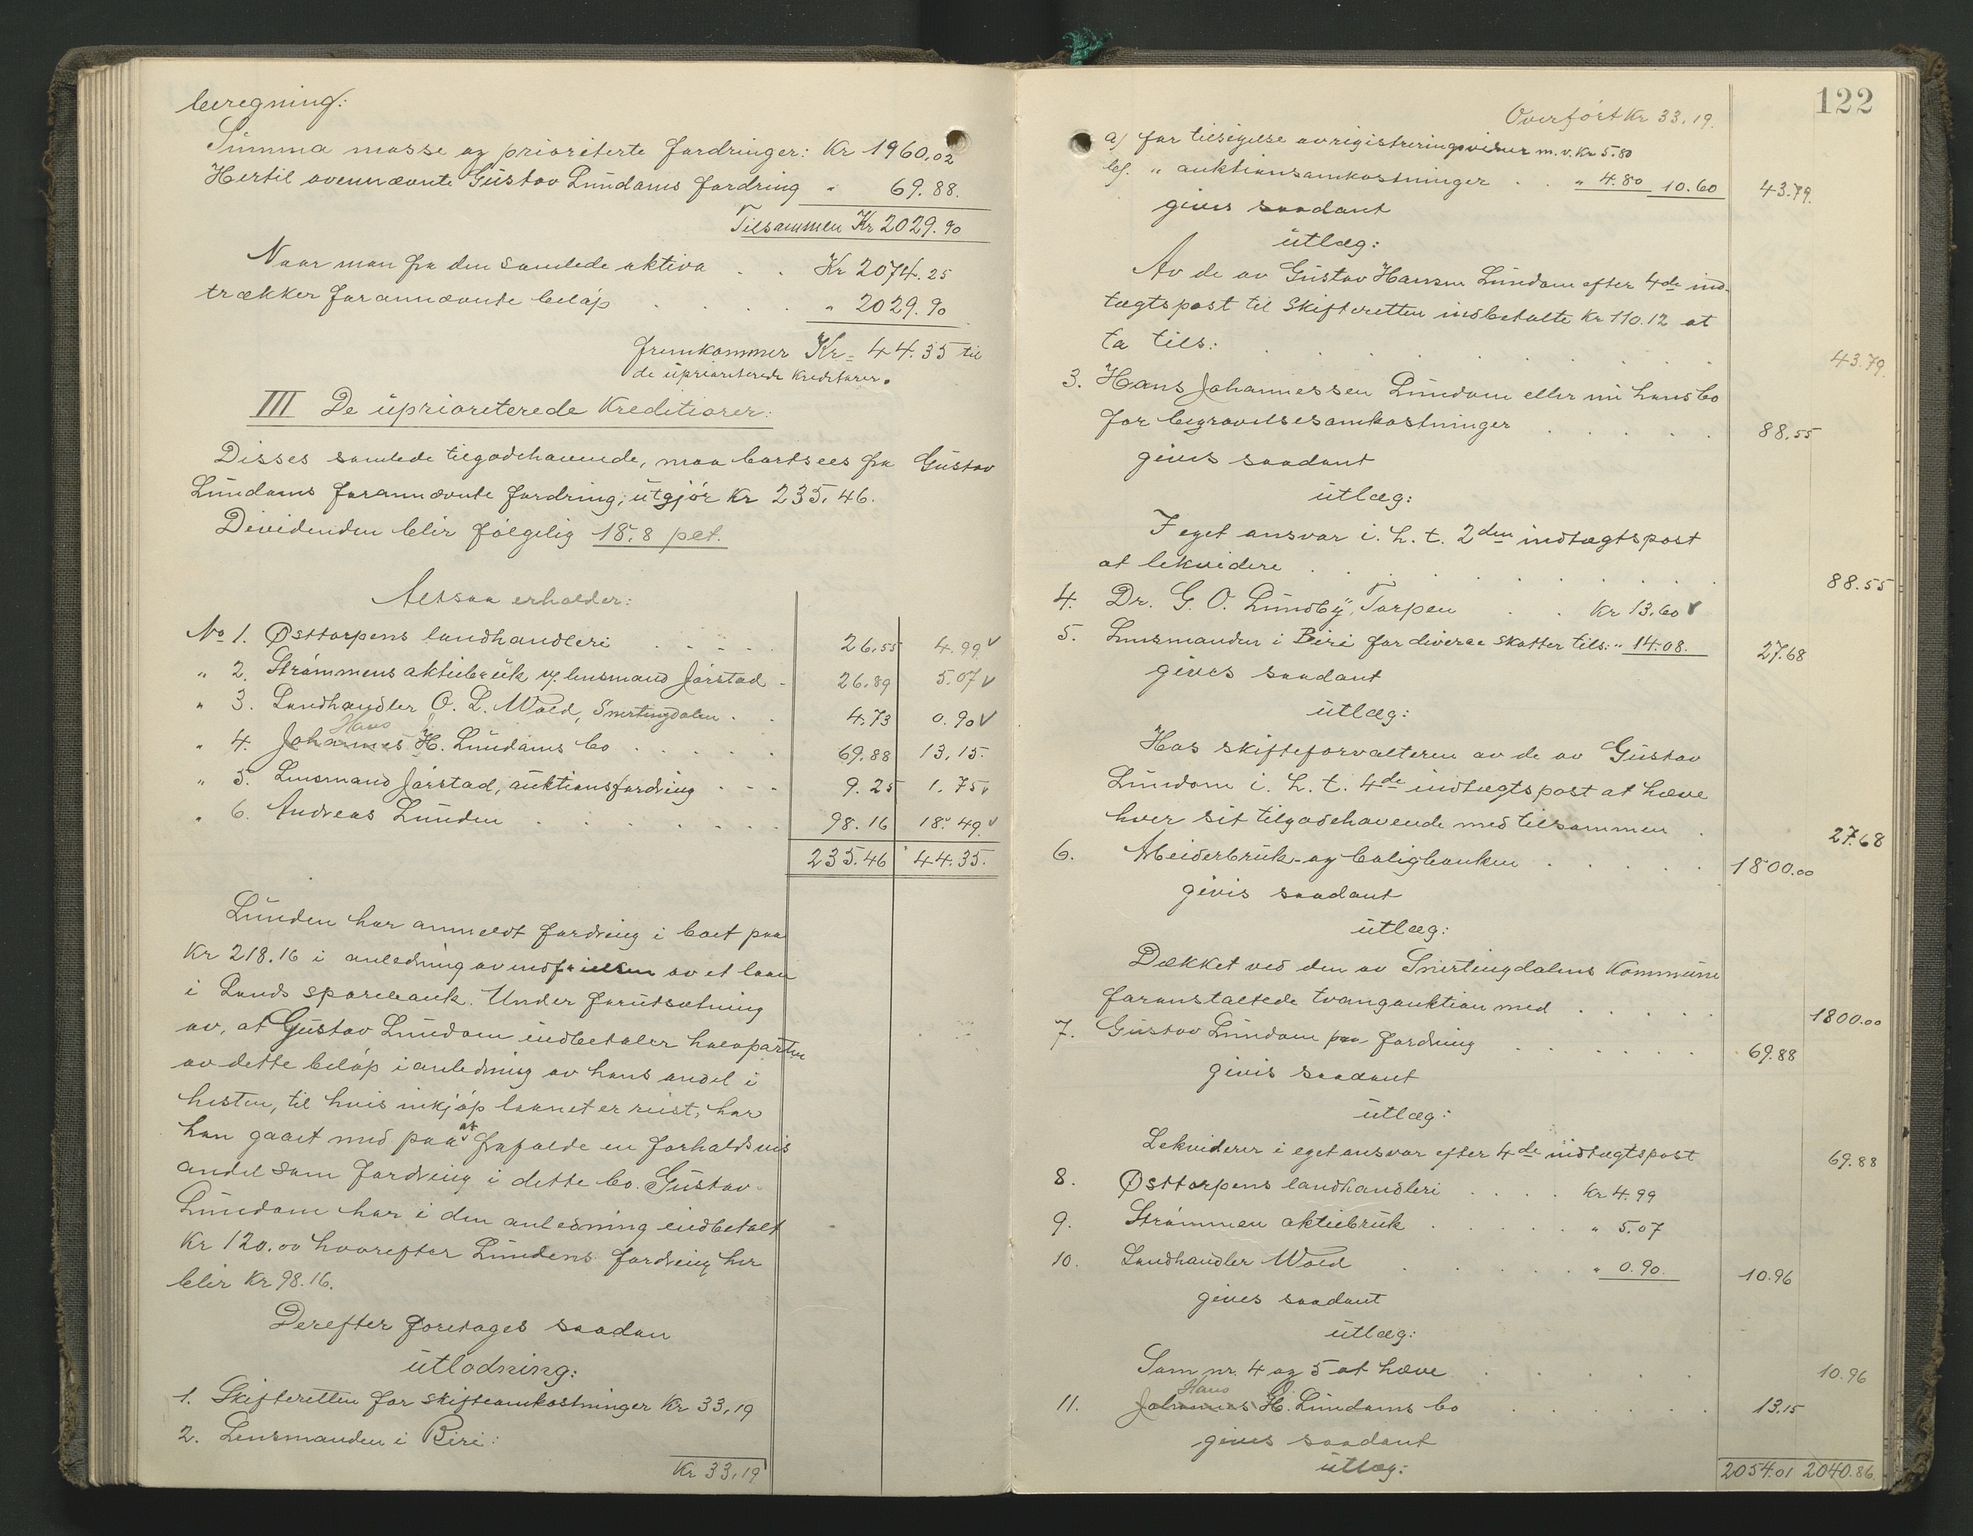 beregning:
Summa masse og prioriterte fordringer: Kr 1960,02
Hertil ovennævnte Gustav Lundams fordring " 69.88.
Tilsammen Kr 2029.90
Naar man fra den samlede aktiva . . Kr 2074.25
trækker forannævnte beløp . . . . " 2029.90
fremkommer Kr. 44.35 til
de uprioriterede kreditorer.
III De uprioriterede kreditorer:
Disses samlede tilgodehavende, naar bortsees fra Gustav
Lundams forannævnte fordring, utgjør Kr 235.46.
Dividenden blir følgelig 18.8 pct.
Altsaa erholder:
No 1. Østtorpens landhandleri . . . . . 26.55 4.99 ✓
" 2. Strømmens aktiebruk v/ lensmand Jørstad - 26.89 5.07 ✓
" 3. Landhandler O. L. Wold, Snertingdalen . . 4.73 0.90 ✓
Hans
" 4. Johannes H. Lundams bo . . . . . 69.88 13.15.
" 5. Lensmand Jørstad, auktionsfordring . . . 9.25 1.75 ✓
" 6. Andreas Lunden . . . . . . . 98.16 18.49 ✓
235.46 44.35.
Lunden har anmeldt fordring i boet paa
Kr 218.16 i anledning av indfrielsen av et laan
i Lands sparebank. Under forutsætning
av, at Gustav Lundam indbetaler halvparten
av dette beløp i anledning av hans andel i
hesten, til hvis inkjøp laanet er reist, har
han gaaet med paa at frafalde en forholdsvis
andel som fordring i dette bo. Gustav
Lundam har i den anledning indbetalt
Kr 120.00 hvorefter Lundens fordring her
blir Kr 98.16.
Derefter foretages saadan
utlodning:
1. Skifteretten for skifteomkostninger Kr 33,19
2. Lensmanden i Biri:
Kr 33,19
122
Overført Kr 33.19.
a) for tilsigelse av registreringsvidner m.v. Kr 5.80
b). " auktionsomkostninger . . " 4.80 10.60 43.79.
gives saadant
utlæg:
Av de av Gustav Hansen Lundam efter 4de ind-
tægtspost til skifteretten indbetalte Kr 110.12 at
ta tils: . . . . . . . . 43.79.
3. Hans Johannessen Lundam eller nu hans bo
for begravelsesomkostninger . . . . . 88.55
gives saadant
utlæg:
I eget ansvar i. h. t. 2den indtægtspost
at likvidere . . . . . . . . 88.55
4. Dr. G. O. Lundby, Torpen . . Kr 13.60 ✓
5. Lensmanden i Biri for diverse skatter tils: " 14.08. 27.68
gives saadant
utlæg:
Hos skifteforvalteren av de av Gustav
Lundam i. h. t. 4de indtægtspost at hæve
hver sit tilgodehavende med tilsammen . 27.68
6. Arbeiderbruk- og boligbanken . . . . . 1800.00
givis saadant
utlæg:
Dækket ved den av Snertingdalens kommune
foranstaltede tvangauktion med . . . . . 1800.00
7. Gustav Lundam paa fordring . . . . . . 69.88
givis saadant
utlæg:
Likviderer i eget ansvar efter 4de indtægtspost 69.88
8. Østtorpens landhandleri . . . . Kr 4.99
9. Strømmen aktiebruk . . . . . . " 5.07
10. Landhandler Wold . . . . . " 0.90. 10.96
gives saadant
utlæg:
Som nr. 4 og 5 at hæve . . . . . . 10.96
Hans
11. Johannes H. Lundams bo . . . . . . 13.15
gives saadant
utlæg:
2054.01 2040.86.